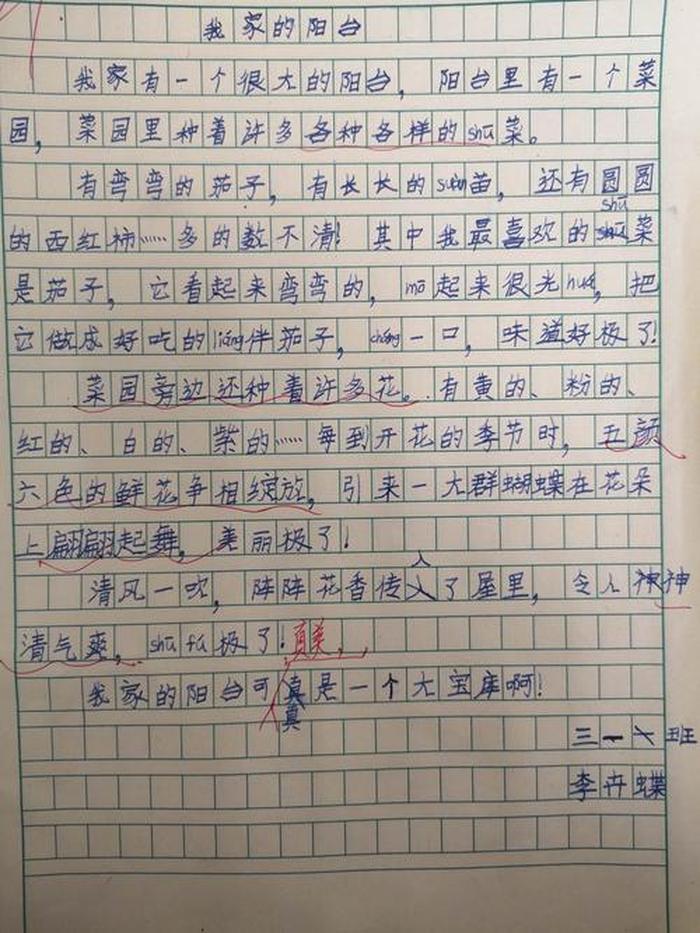 我家的阳台
我家有一个很大的阳台，阳台里有一个菜
园，菜园里种着许多各种各样的shū菜。
有弯弯的茄子，有长长的suàn苗，还有圆圆
shū
的西红柿……多的数不清！其中我最喜欢的菜
是茄子，它看起来弯弯的，mō起来很光huá，把
它做成好吃的liáng伴茄子，cháng一口，味道好极了！
菜园旁边还种着许多花。有黄的、粉的、
红的、白的、紫的……每到开花的季节时，五颜
六色的鲜花争相绽放，引来一大群蝴蝶在花朵
上翩翩起舞，美丽极了！
入
清风一吹，阵阵花香传入了屋里，令人神
清气爽，shū fú极了！真美，
我家的阳台可真是一个大宝库啊！
真
三一六班
李卉蝶